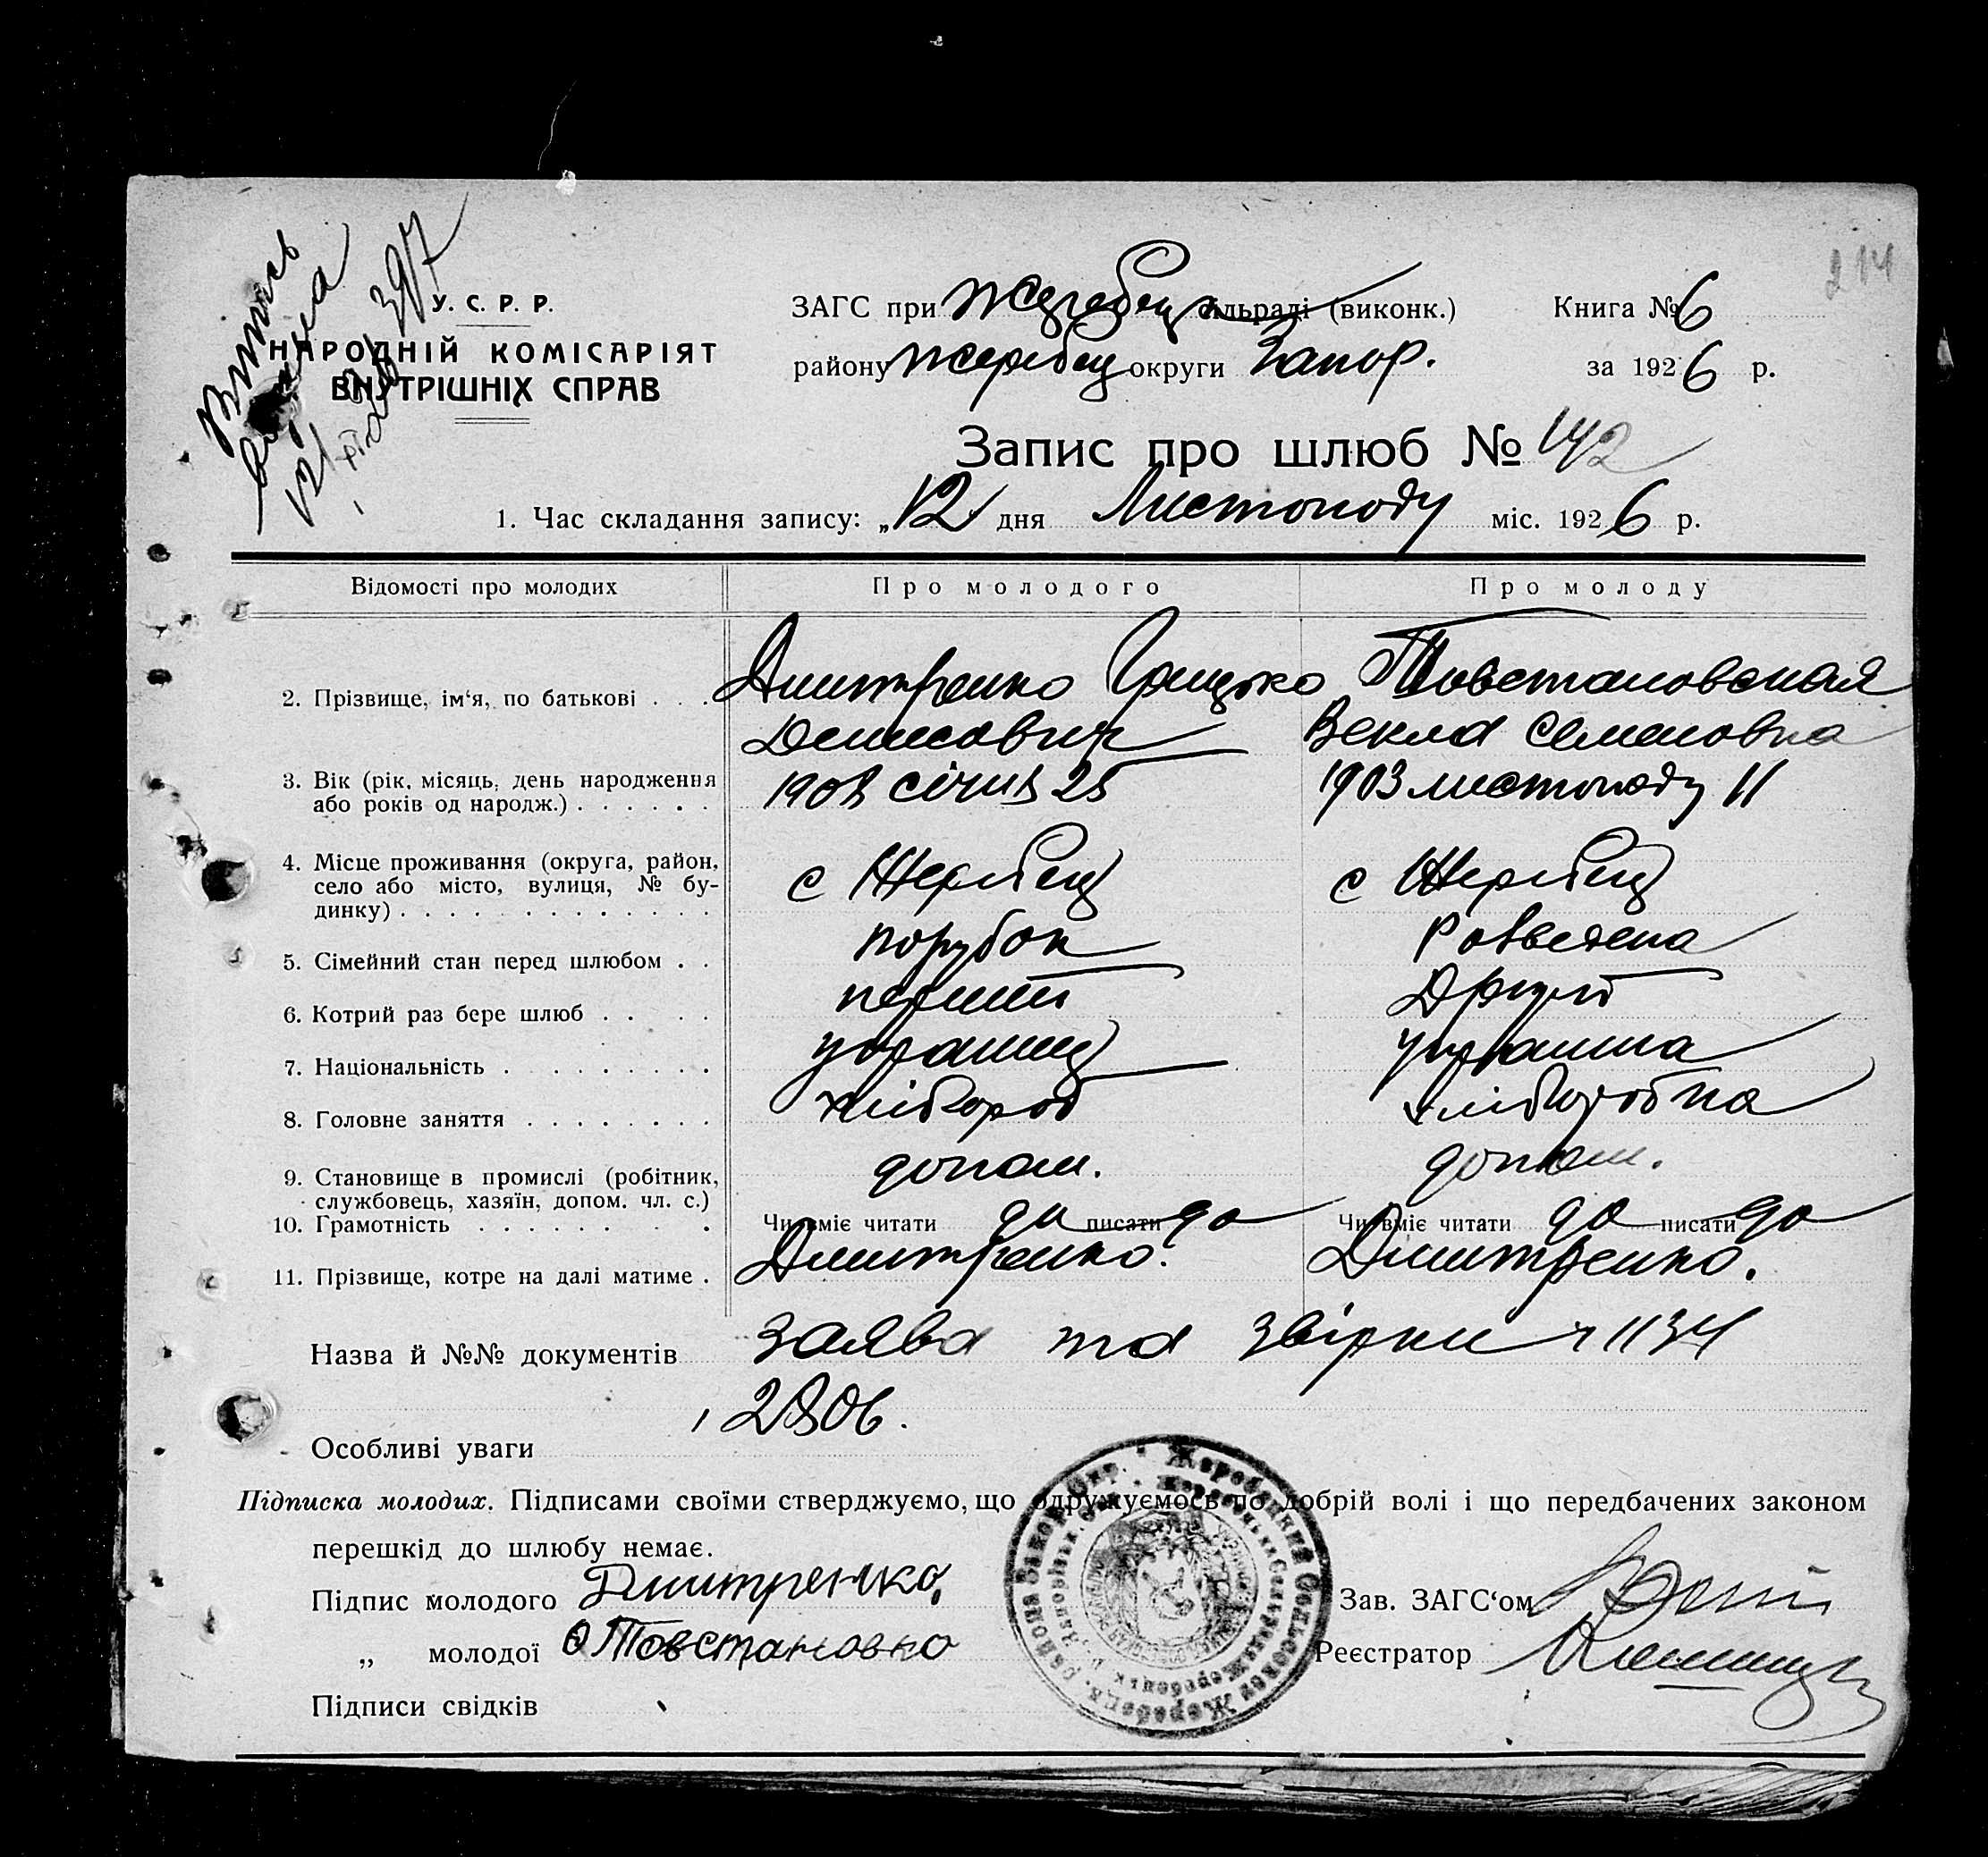 214
Витись
видана
12/
397
У. С. Р. Р.
НАРОДНІЙ КОМІСАРІЯТ
ВНУТРІШНІХ СПРАВ
ЗАГС при Жеребец сільраді (виконк.) Книга № 6
району Жеребец округи Запор. за 1926 р.
Запис про шлюб № 142
1. Час складання запису: „12" дня Листопаду міс. 1926 р.
Відомості про молодих Про молодого Про молоду
2. Прізвище, ім‘я, по батькові . . . Дмитренко Грицько Товстановская
Денисович Векла Семеновна
3. Вік (рік, місяць, день народження
або років од народж.) . . . . . . січня 25 1903 листопаду 11
4. Місце проживання (округа, район,
село або місто, вулиця, № бу-
динку) . . . . . . . . . . . . . с Жеребец с Жеребец
5. Сімейний стан перед шлюбом . . парубок Розведена
6. Котрий раз бере шлюб . . . . перший Другий
7. Національність . . . . . . . . . украинец украинка
8. Головне заняття . . . . . . . . хлібороб хліборобка
9. Становище в промислі (робітник,
службовець, хазяїн, допом. чл. с.) допом. допом.
10. Грамотність . . . . . . . . Чи вміє читати да писати да Чи вміє читати да писати да
11. Прізвище, котре на далі матиме . Дмитренко. Дмитренко.
Назва й №№ документів Заява та звірки 1134
, 2806.
Особливі уваги
Підписка молодих. Підписами своїми стверджуємо, що одружуємось по добрій волі і що передбачених законом
перешкід до шлюбу немає.
Підпис молодого Дмитренко
Зав. ЗАГС‘ом
„ молодої Ѳ Товстановко
Реєстратор
Підписи свідків